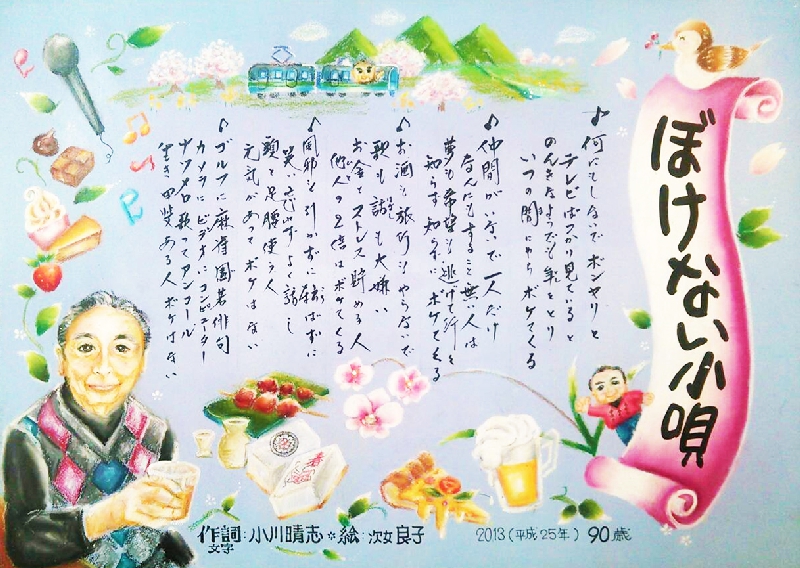 ぼけない小唄
♪何にもしないでボンヤリと
テレビばっかり見ていると
のんきなようでも年をとり
いつの間にやらボケてくる
♪仲間がいないで一人だけ
なんにもすること無い人は
夢も希望も逃げて行く
知らず知らずにボケてくる
♪お酒も旅行もやらないで
歌も踊も大嫌い
お金とストレス貯める人
他人の2倍はボケてくる
♪風邪も引かずに転ばずに
笑い忘れずよく話し
頭と足腰使う人
元気があってボケはない
♪ゴルフに麻雀囲碁俳句
カメラにビデオにコンピューター
ナツメロ歌ってアンコール
生き甲斐ある人ボケはない
作詞・文字 小川晴志*絵 次女 良子
2013(平成25年) 90歳